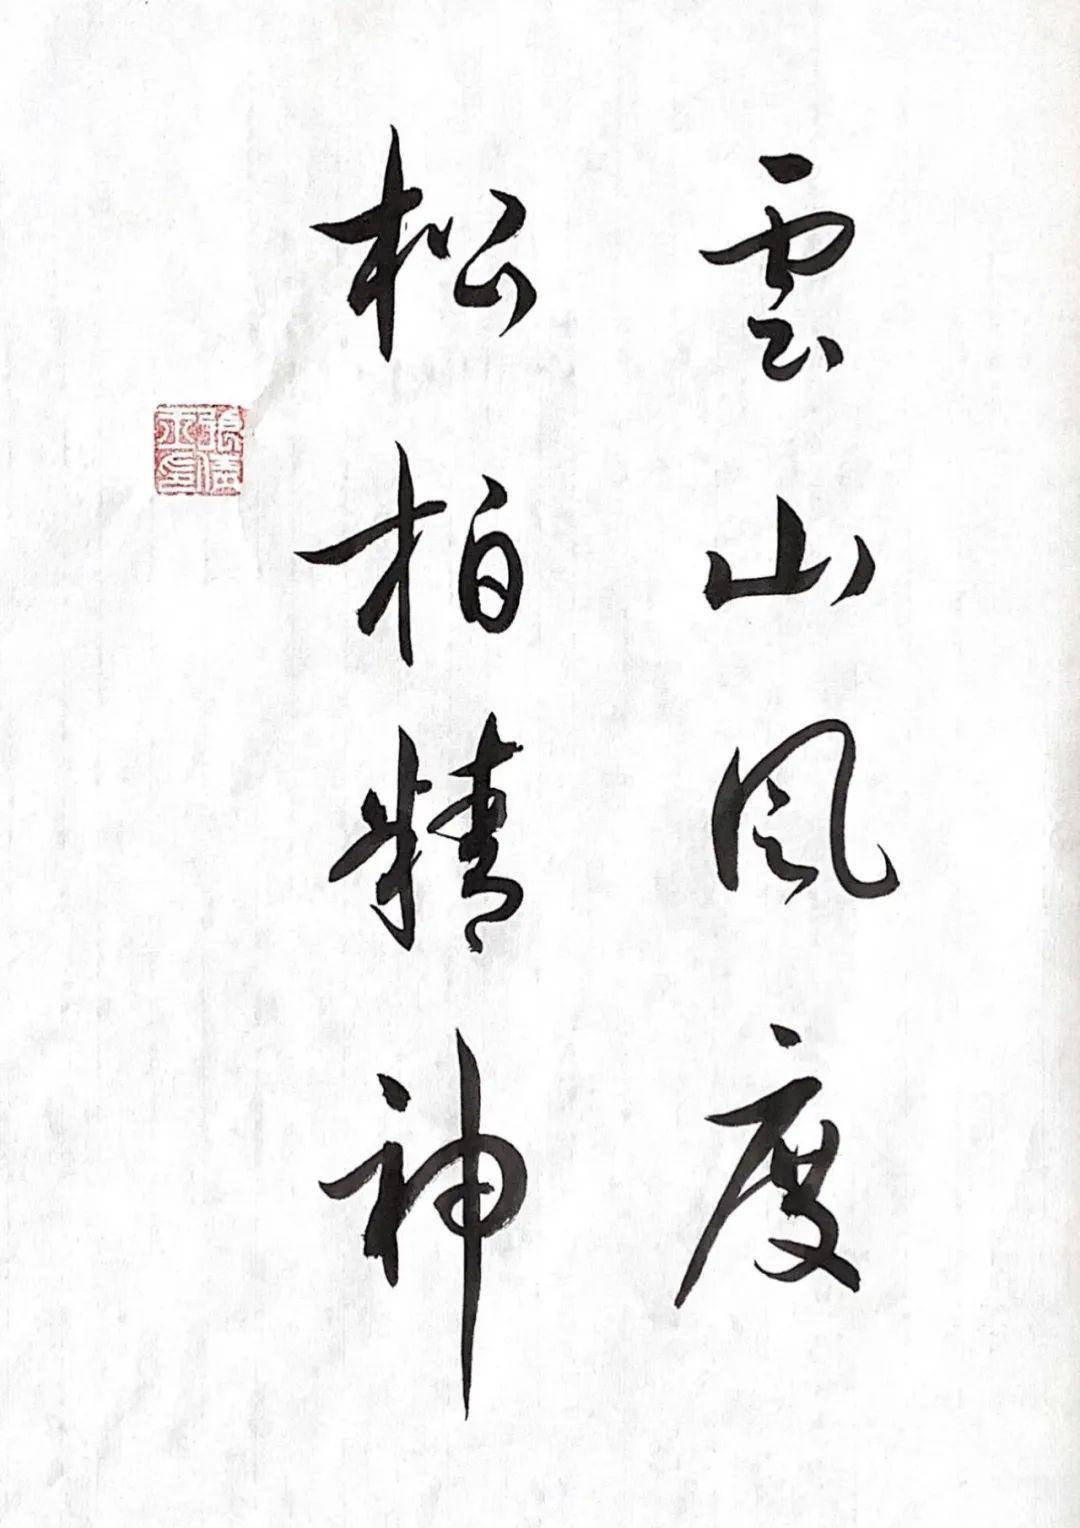 雲山风度
松柏精神